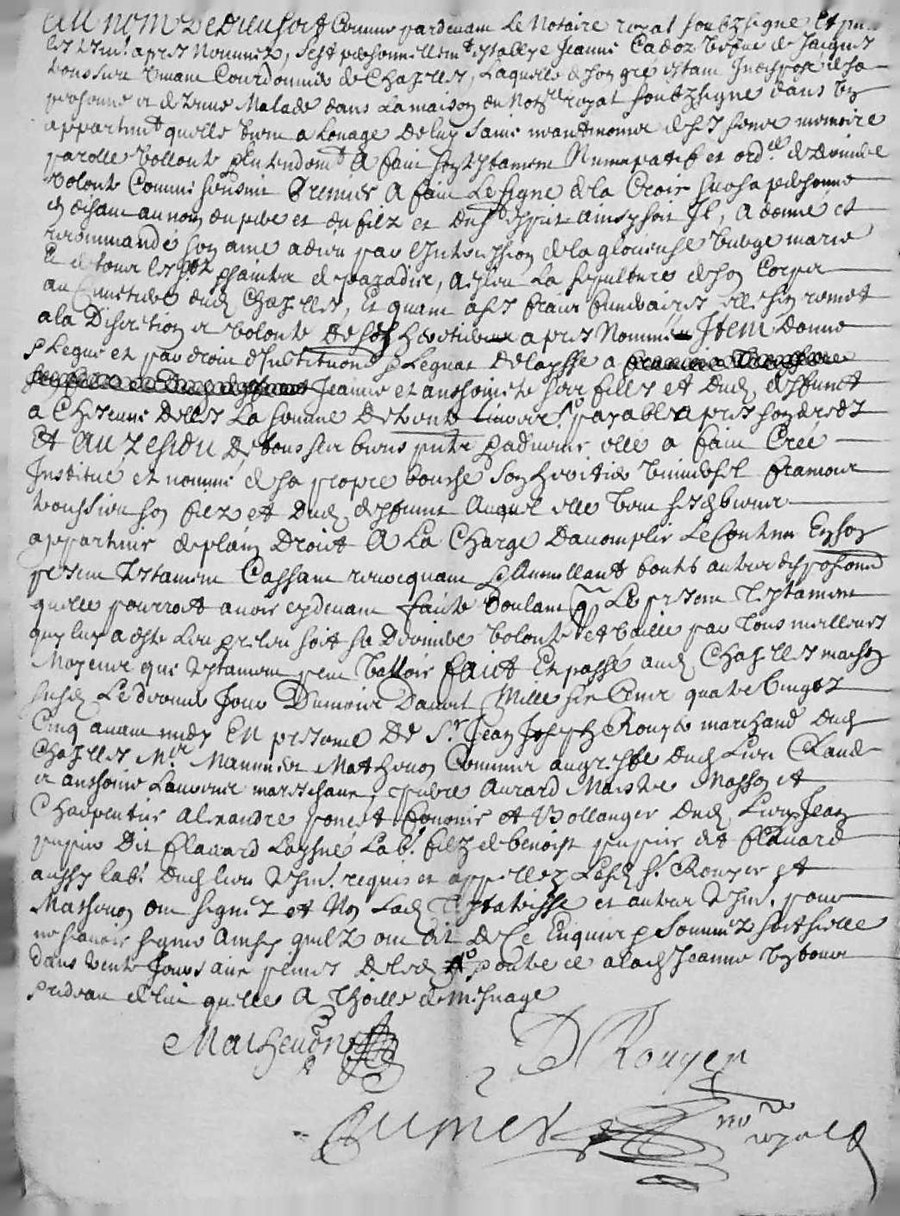 Au nom de dieu soit Comme pardevant Le Notaire royal soubzsigne Et pnt
les tesm. apres Nommez, s'est personnellemt establye Jeanne Cadoz vefve de Jacques
troussieu vivant Courdonnier de Chazelles, Laquelle de son gré estant Indisposee de sa
personne et detenue Malade dans La maison du Notre royal soubzsigne dans un
appartemt quelle tient a Louage de luy saine neantmoins de ses sens memoire
parolle vollonté et entendemt A faict son testament Nuncupatif et ordre de derniere
volonté Comme sensuit Premier A faict Le signe de la Croix sur sa personne
en disant au nom du pere et du filz et du st esprit ainsy soit Il, A donné et
recommandé son ame a dieu par l'Intercession de la glorieuse vierge marie
et de tous les sts et sainctes de paradis, a esleu La sepulture de son Corps
au Cimetiere dud. Chazelles, Et quant a ses frais funeraires elle s'en remet
a la Discretion et volonté de ses heritiers apres Nommé Item donne
et Legue et par droit d'Institution et Legat delaysse a
Jeanne et anthoinette ses filles et dud. deffunct
a Chascune delles La somme de trente Livres payable apres son decedz
Et Au Residu de tous ses biens pnts et advenir elle a faict Creé
Institué et nommé de sa propre bouche son heritier universel francois
troussieu son filz et dud. deffunct Auquel elle veut ses biens
appartenir de plain Droict A La Charge Daccomplir Le Contenu En son
present testament Cassant revocquant et Annullant touts autres dispositions
quelle pourroit avoir cydevant faicte voulant que Le present testament
quy luy a esté Leu et releu soit sa derniere volonté et vaille par tous meilleurs
Moyens que testament peut valloir faict Et passé aud. Chazelles maison
susd. Le dernier Jour Du mois Daoust Mille six Cents quatre vingtz
Cinq avant midy En presence de Sr. Jean Joseph Rouyer marchand dud.
Chazelles Mr. Mathevon Commis au greffe dud. Lieu Claude
et anthoine mareschaux, pierre Avrard Maistre Masson et
Charpentier Alexandre poncet et Bollanger dud. Lieu Jean
pupier dit flavard Laysné Labr. filz de benoist pupier dit flavard
aussy labr. dud. lieu tesm. requis et appellez Lesd. sr. Rouyer et
Mathevon ont signez et Non Lad. testatrisse et autres tesm. pour
ne scavoir signer Ainsy quilz ont dit de ce Enquis et Sommez
dans trente Jours aux peines de led. a lad. Jeanne
quelle A Thoille de mesnage
Mathevon
D Rouyer
nore
royal